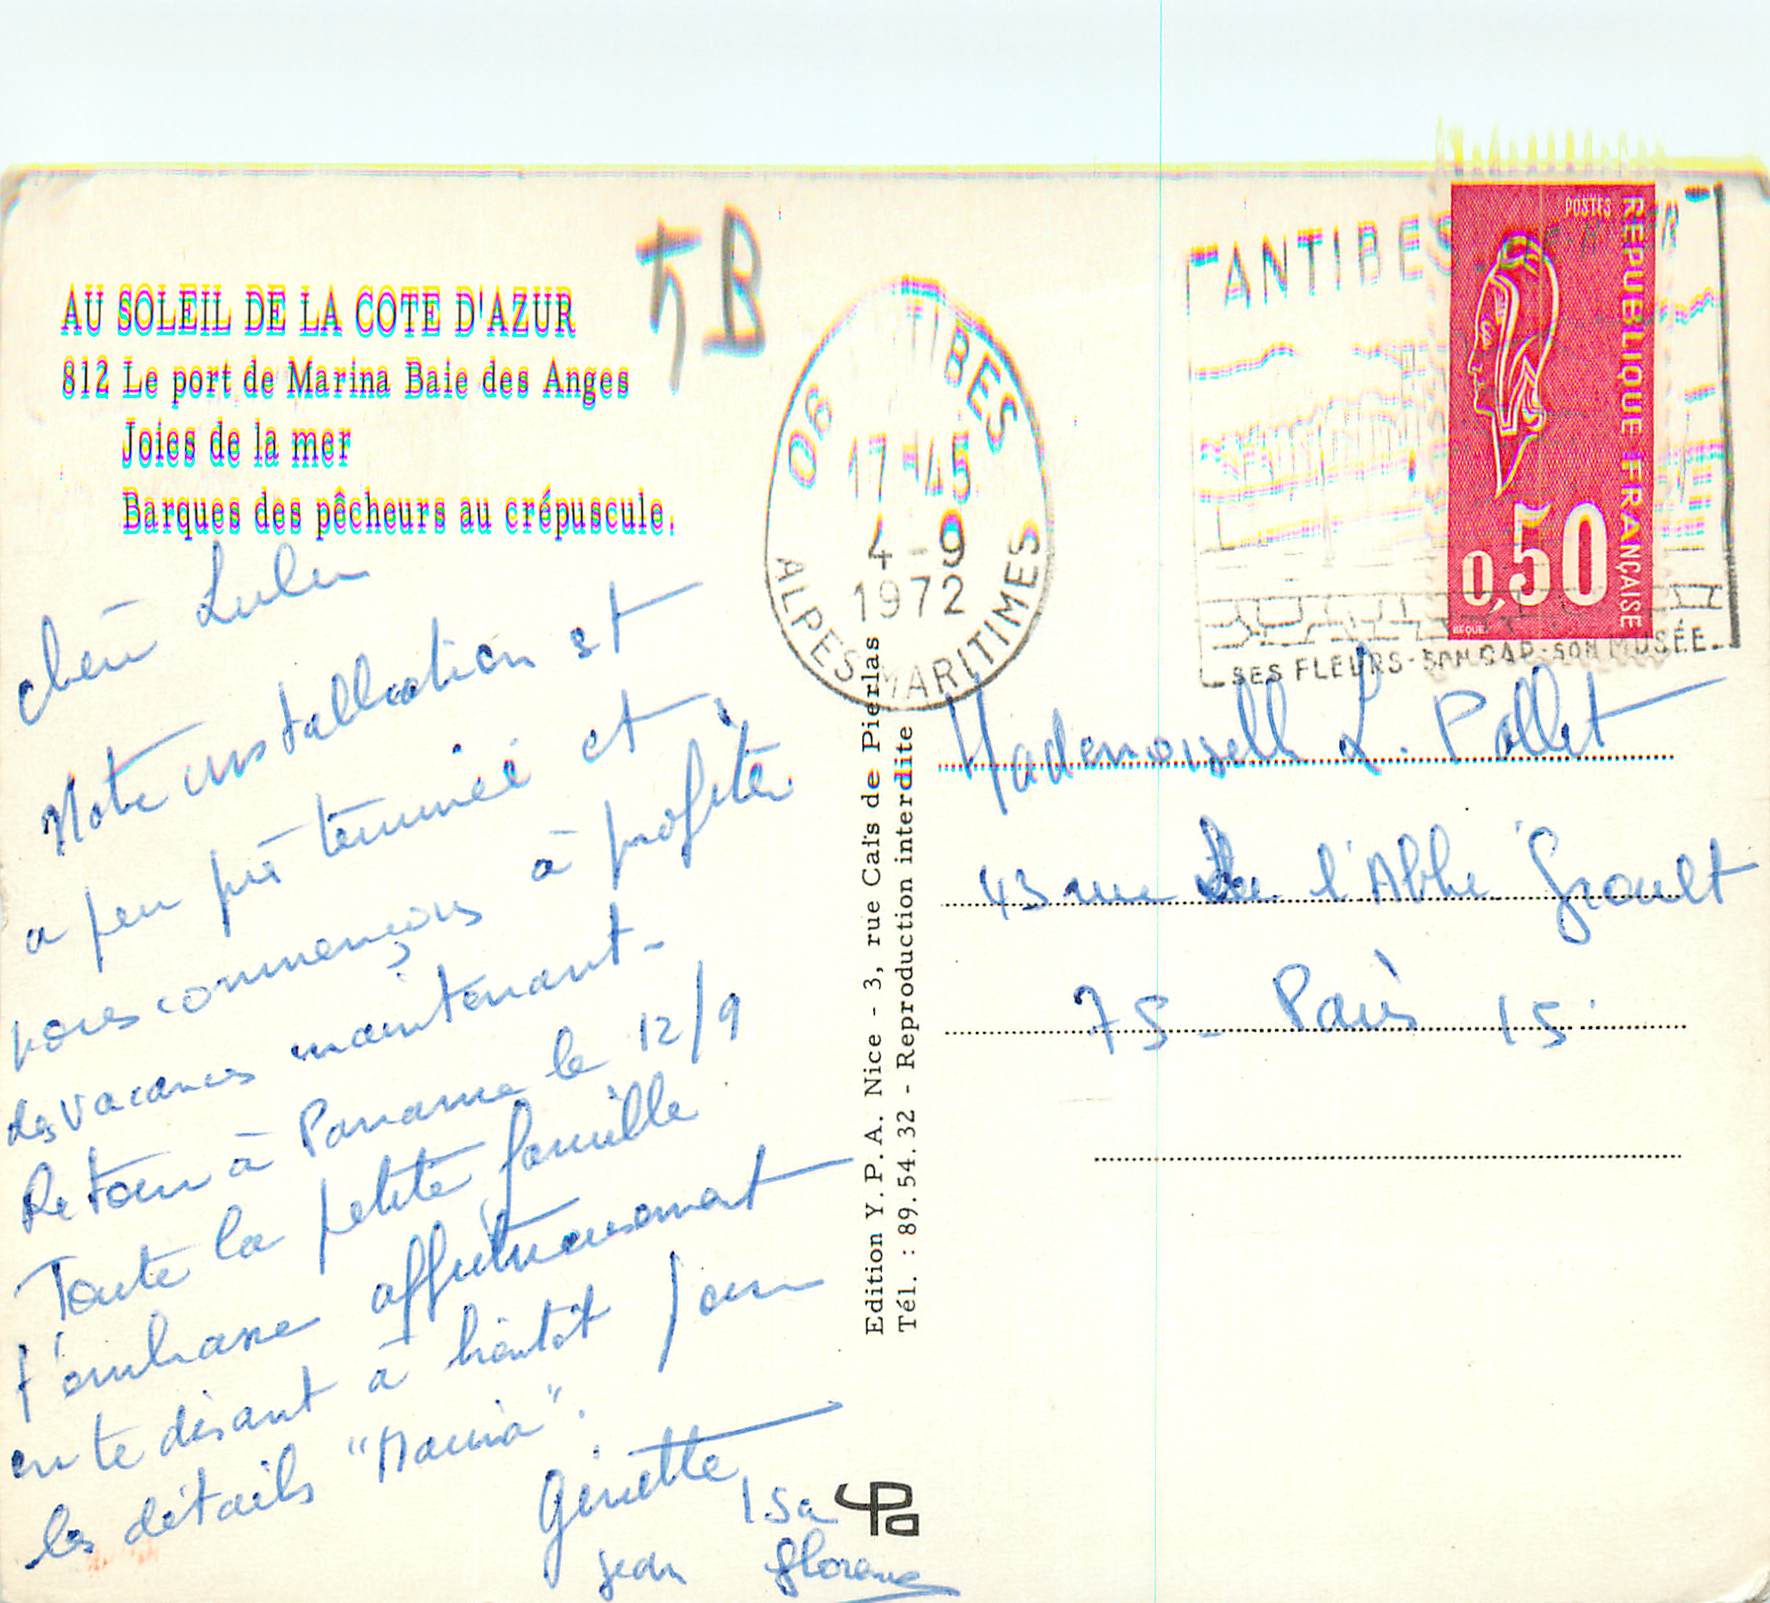 AU SOLEIL DE LA COTE D'AZUR
812 Le port de Marina Baie des Anges
Joies de la mer
Barques des pêcheurs au crépuscule.
5B
06 TIBES
17-45
4-9
1972
ALPES MARITIMES
ANTIBES
SES FLEURS-SON CAP-SON MUSÉE-
POSTES
REPUBLIQUE FRANÇAISE
0,50
BEQUET
Lulu
Notre installation est
a peu près terminée et
nous commençons à profiter
des vacances maintenant-
Retour à Paname le 12/9
Toute la petite famille
t'embrasse affectueusement
en te disant à bientôt pour
les détails "Marina".
Ginette
Isa
Jean Florence
Edition Y. P. A. Nice - 3, rue Caïs de Pierlas
Tél. : 89.54.32 - Reproduction interdite
Mademoiselle L. Pollet
43 rue de l'Abbé Groult
75- Paris 15